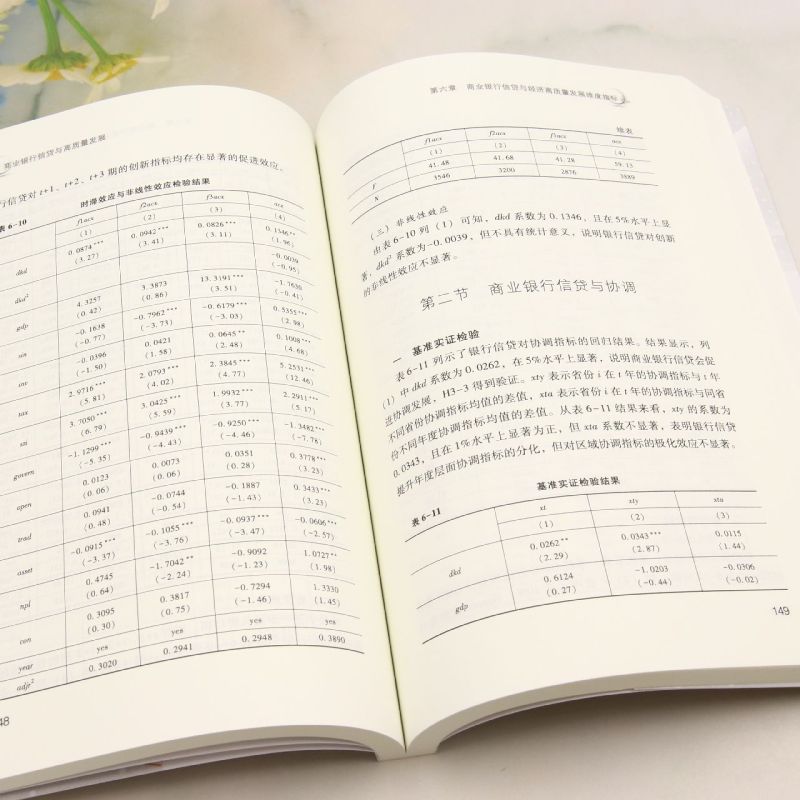 商业银行信贷与高质量发展
行信贷对 t+1、t+2、t+3 期的创新指标均存在显著的促进效应。
表 6-10 时滞效应与非线性效应检验结果
f1acx f2acx f3acx acx
(1) (2) (3) (4)
dkd 0.0874*** 0.0942*** 0.0826*** 0.1346**
(3.27) (3.41) (3.11) (1.96)
dkd² -0.0039
(-0.95)
gdp 4.3257 3.3873 13.3191*** -1.7630
(0.42) (0.86) (3.51) (-0.41)
sin -0.1638 -0.7962*** -0.6179*** 0.5355***
(-0.77) (-3.73) (-3.03) (2.98)
inv -0.0396 0.0421 0.0645** 0.1008***
(-1.50) (1.58) (2.48) (4.68)
tax 2.9716*** 2.0793*** 2.3845*** 5.2531***
(5.81) (4.02) (4.77) (12.46)
sci 3.7050*** 3.0425*** 1.9932*** 2.2911***
(6.79) (5.59) (3.77) (5.17)
govern -1.1299*** -0.9439*** -0.9250*** -1.3482***
(-5.35) (-4.43) (-4.46) (-7.78)
open 0.0123 0.0073 0.0351 0.3778***
(0.06) (0.06) (0.28) (3.23)
trad 0.0941 -0.0744 -0.1887 0.3433***
(0.48) (-0.54) (-1.43) (3.23)
asset -0.0915*** -0.1055*** -0.0937*** -0.0606***
(-3.37) (-3.76) (-3.47) (-2.57)
npl 0.4745 -1.7042** -0.9092 1.0727**
(0.64) (-2.24) (-1.23) (1.98)
con 0.3095 0.3817 -0.7294 1.3330
(0.30) (0.75) (-1.46) (1.45)
year yes yes yes yes
adjr² 0.3020 0.2941 0.2948 0.3890
48
第六章 商业银行信贷与经济高质量发展维度指标
续表
f1acx f2acx f3acx acx
(1) (2) (3) (4)
F 41.48 41.68 41.28 59.15
N 3546 3200 2876 3889
（三）非线性效应
由表 6-10 列（1）可知，dkd 系数为 0.1346，且在 5%水平上显
著，dkd² 系数为-0.0039，但不具有统计意义，说明银行信贷对创新
的非线性效应不显著。
第二节 商业银行信贷与协调
一 基准实证检验
表 6-11 列示了银行信贷对协调指标的回归结果。结果显示，列
（1）中 dkd 系数为 0.0262，在 5%水平上显著，说明商业银行信贷会促
进协调发展，H3-3 得到验证。xty 表示省份 i 在 t 年的协调指标与 t 年
不同省份协调指标均值的差值，xta 表示省份 i 在 t 年的协调指标与同省
份不同年度协调指标均值的差值。从表 6-11 结果来看，xty 的系数为
0.0343，且在 1%水平上显著为正，但 xta 系数不显著，表明银行信贷
提升年度层面协调指标的分化，但对区域协调指标的极化效应不显著。
表 6-11 基准实证检验结果
xt xty xta
(1) (2) (3)
dkd 0.0262** 0.0343*** 0.0115
(2.29) (2.87) (1.44)
gdp 0.6124 -1.0203 -0.0306
(0.27) (-0.44) (-0.02)
149